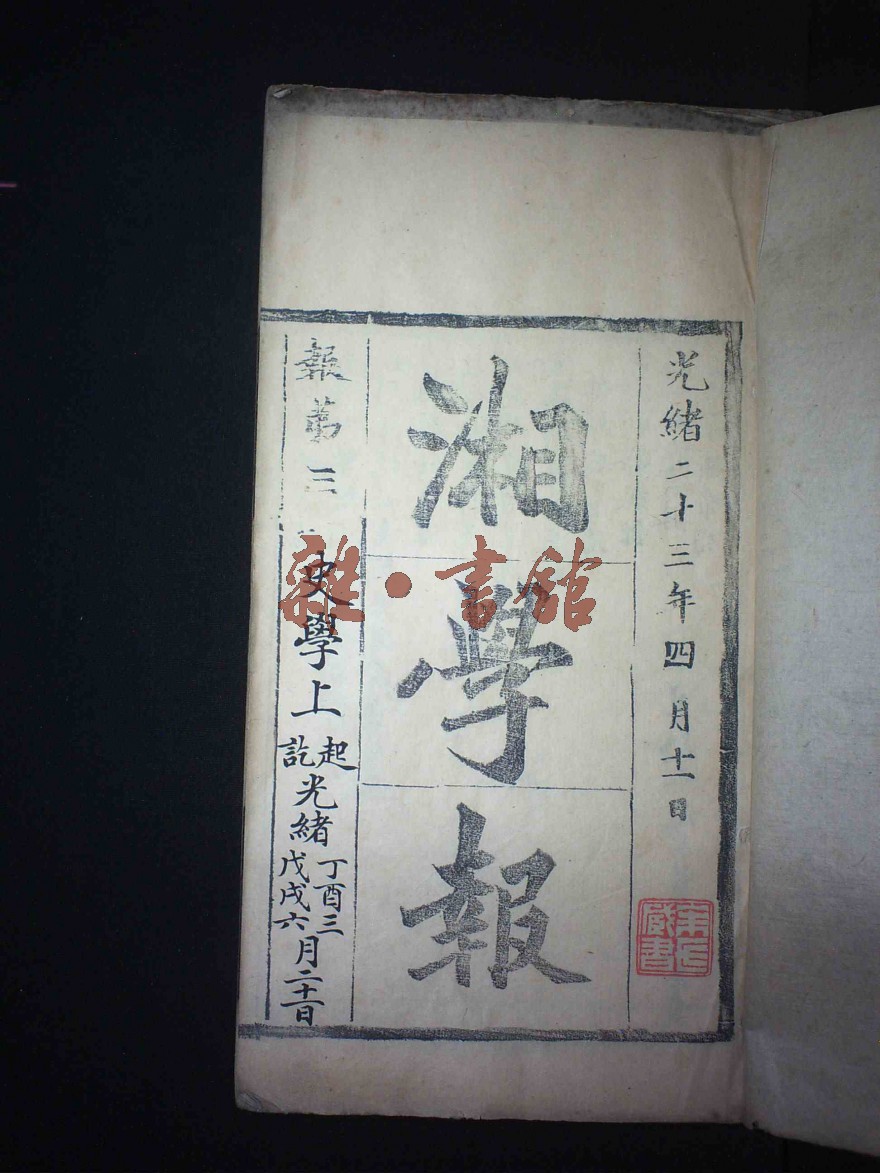 光緒二十三年四月十一日
湘學報
報第三
史學上
起訖
光緒
丁酉三
戊戌六
月二十一日
雜·書館
氏藏書